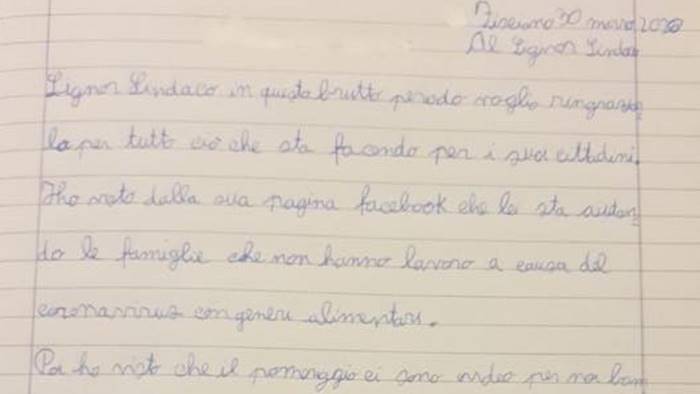 Fisciano 30 marzo 2020
Al Signor Sindaco
Signor Sindaco in questo brutto periodo voglio ringraziar
la per tutto ciò che sta facendo per i suoi cittadini.
Ho visto dalla sua pagina facebook che lei sta aiutan
do le famiglie che non hanno lavoro a causa del
coronavirus con generi alimentari.
Poi ho visto che il pomeriggio ci sono video per noi bam